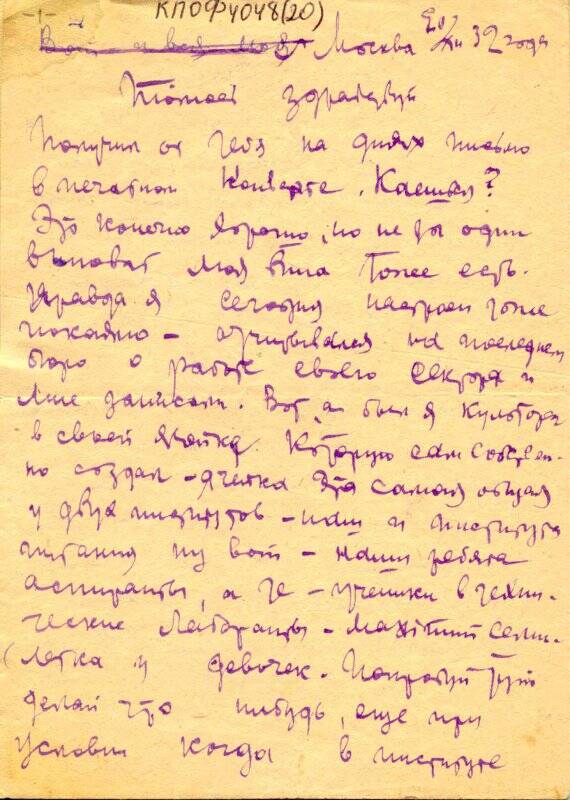 КПОФ4048(20)
Вот и вся моя Москва 20/XII 32 года
здравствуй
Получил от тебя на днях письмо
в печатном конверте. Каешься?
Это конечно хорошо, но не ты один
виноват моя вина тоже есть.
Правда я сегодня настроен тоже
покаяно – отчитывался на последнем
бюро о работе своего сектора и
мне записали. Вот, а был я культпроп
в своей ячейке. Которую сам собствен-
но создал – ячейка эта самая общая
у двух институтов – наш и института
питания ну вот – наши ребята
аспиранты, а те – ученики в техни-
ческие лаборанты – максимум семи-
летка и девочек. Попробуй тут
делай что нибудь, еще при
условии когда в институте